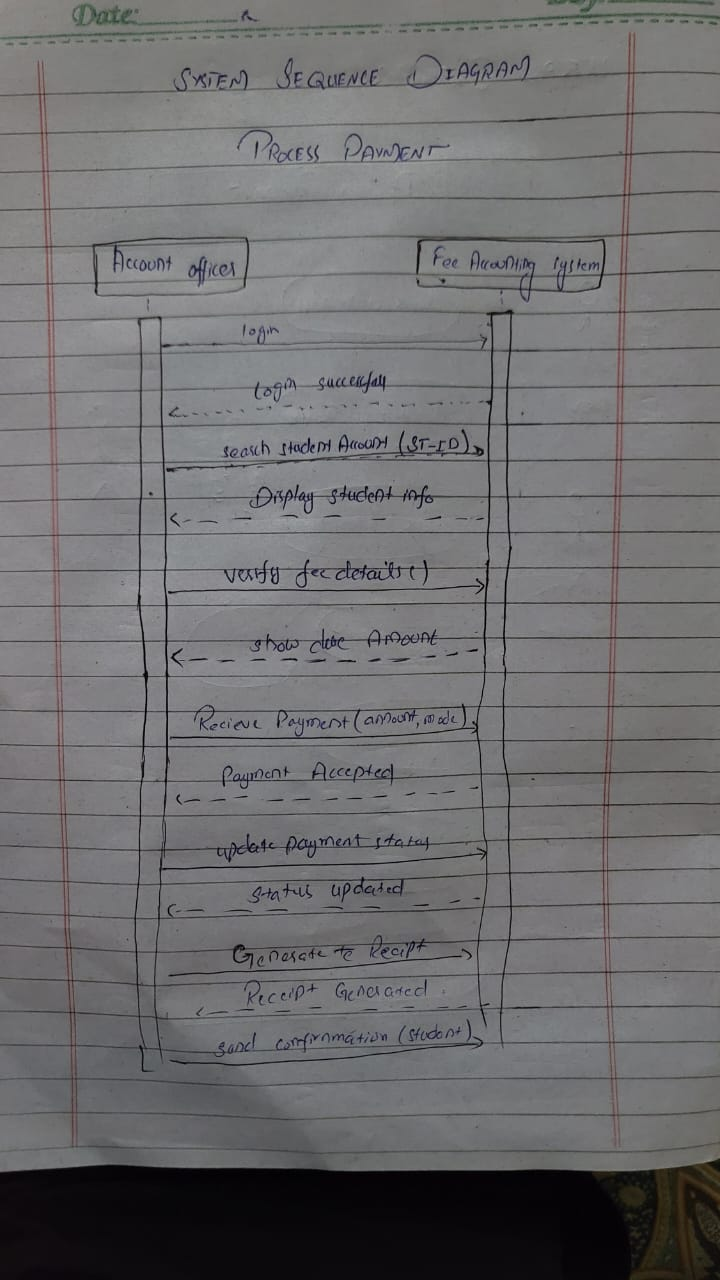 Date:
SYSTEM SEQUENCE DIAGRAM
PROCESS PAYMENT
Account officer
Fee Accounting system
login
login successfull
search student Account (ST-ID)
Display student info
verify fee details()
show due Amount
Recieve Payment (amount, mode)
Payment Accepted
update payment status
Status updated
Generate te Recipt
Receipt Generated.
send confirmation (student)